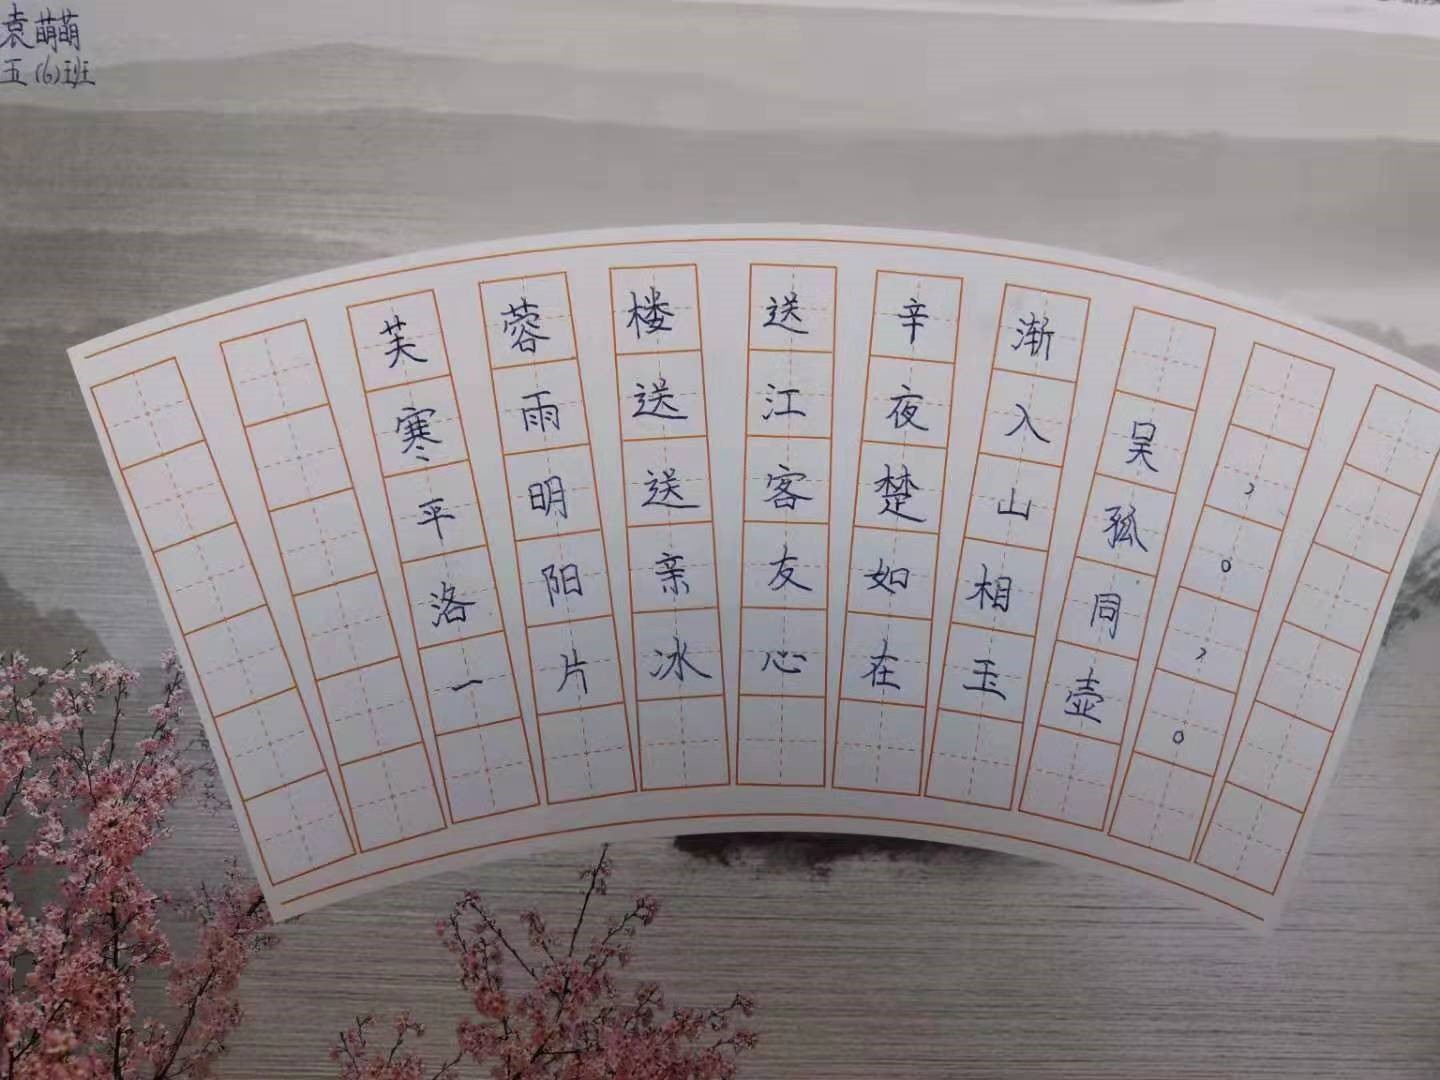 袁萌萌
五(6)班
芙蓉楼送辛渐
寒雨送江夜入吴，
平明送客楚山孤。
洛阳亲友如相同，
一片冰心在玉壶。